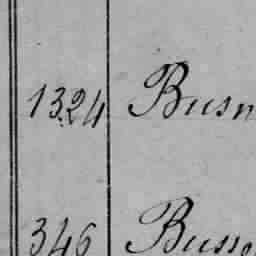 1324 Busn
346 Busso